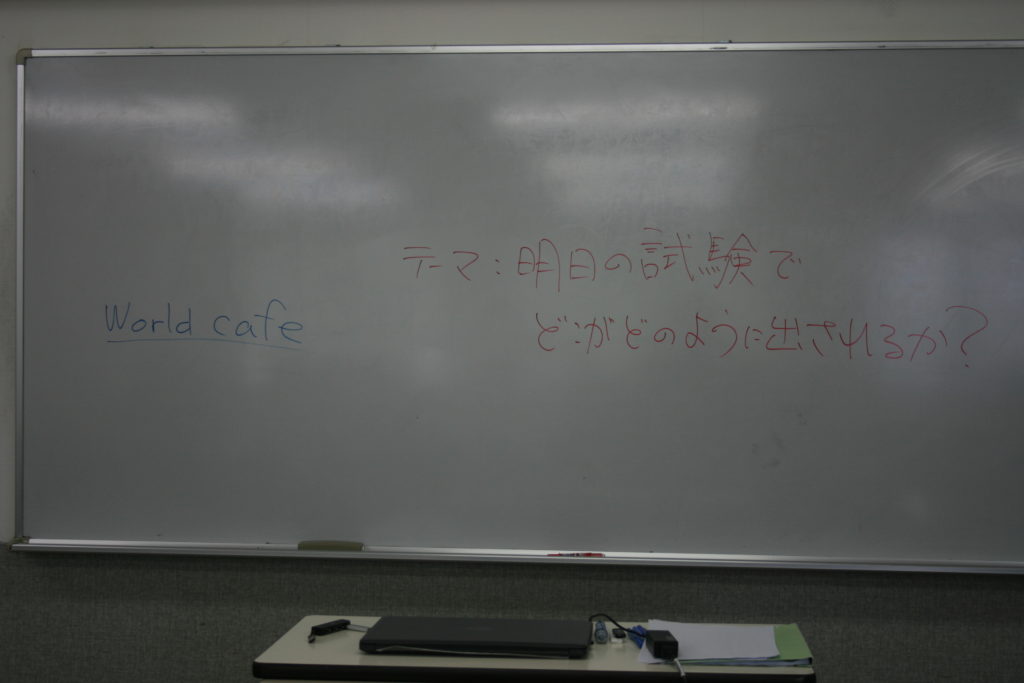 World cafe
テーマ:明日の試験で
どこがどのように出されるか?